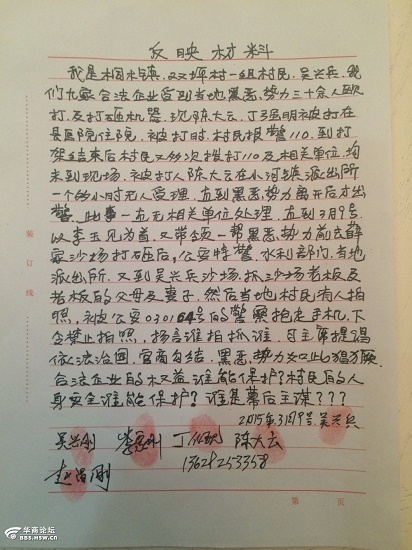 反映材料
我是桐木镇,双坪村一组村民,吴兴兵,我
们九家合法企业受到当地黑恶势力三十余人殴
打,及打砸机器,现陈大云,丁强明被打在
县医院住院,被打时,村民报警110,到打
架结束后村民又多次拨打110及相关单位,均
未到现场,被打人陈大云在小河派出所
一个多小时无人受理,直到黑恶势力离开后才出
警,此事一直无相关单位处理,直到3月9号,
以李玉见为首,又带领一帮黑恶势力前去薛
家沙场打砸后,公安特警,水利部门,当地
派出所,又到吴兴兵沙场,抓沙场老板及
老板的父母及妻子,然后当地村民有人拍
照,被公安030164号的警察抢走手机,下
令禁止拍照,扬言谁拍抓谁,习主席提倡
依法治国,官商勾结,黑恶势力如此猖獗,
合法企业的权益谁能保护?村民的人
身安全谁能保护?谁是幕后主谋???
2015年3月9号 吴兴兵
吴兴刚 陈大云
赵昌刚 13629253358
装订线
第 页
华商论坛
BBS.HSW.CN